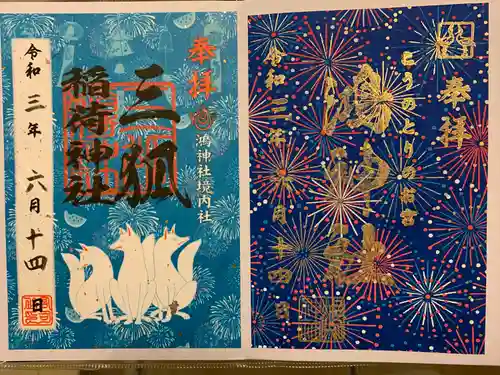 奉拝
こうのとりのお宮
令和三年六月十四日
奉拝
鴻神社境内社
三狐
稲荷神社
令和三年六月十四日